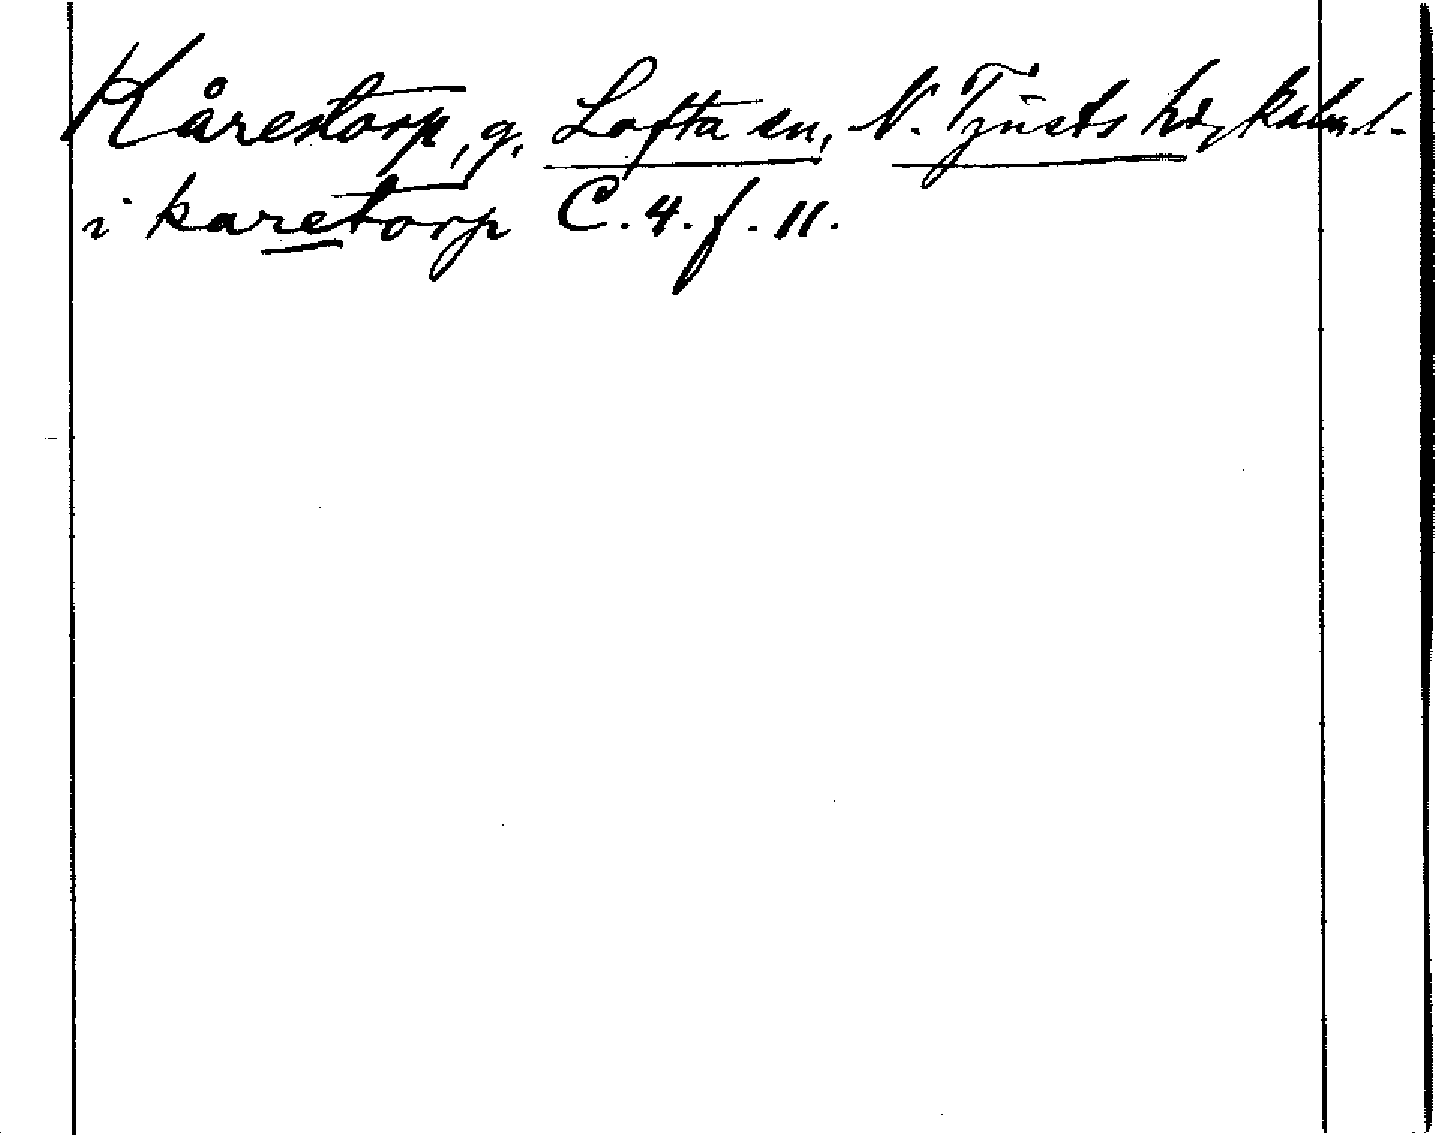 Kårestorp, g. Lofta sn, N. Tjusts hd, Kalm. l.
i karetorp C. 4. f. 11.